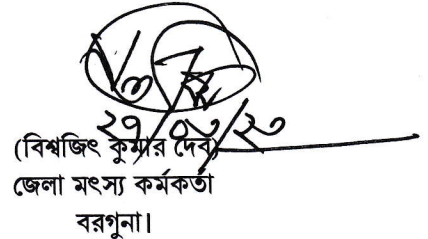 (বিশ্বজিৎ কুমার দেব)
জেলা মৎস্য কর্মকর্তা
বরগুনা।